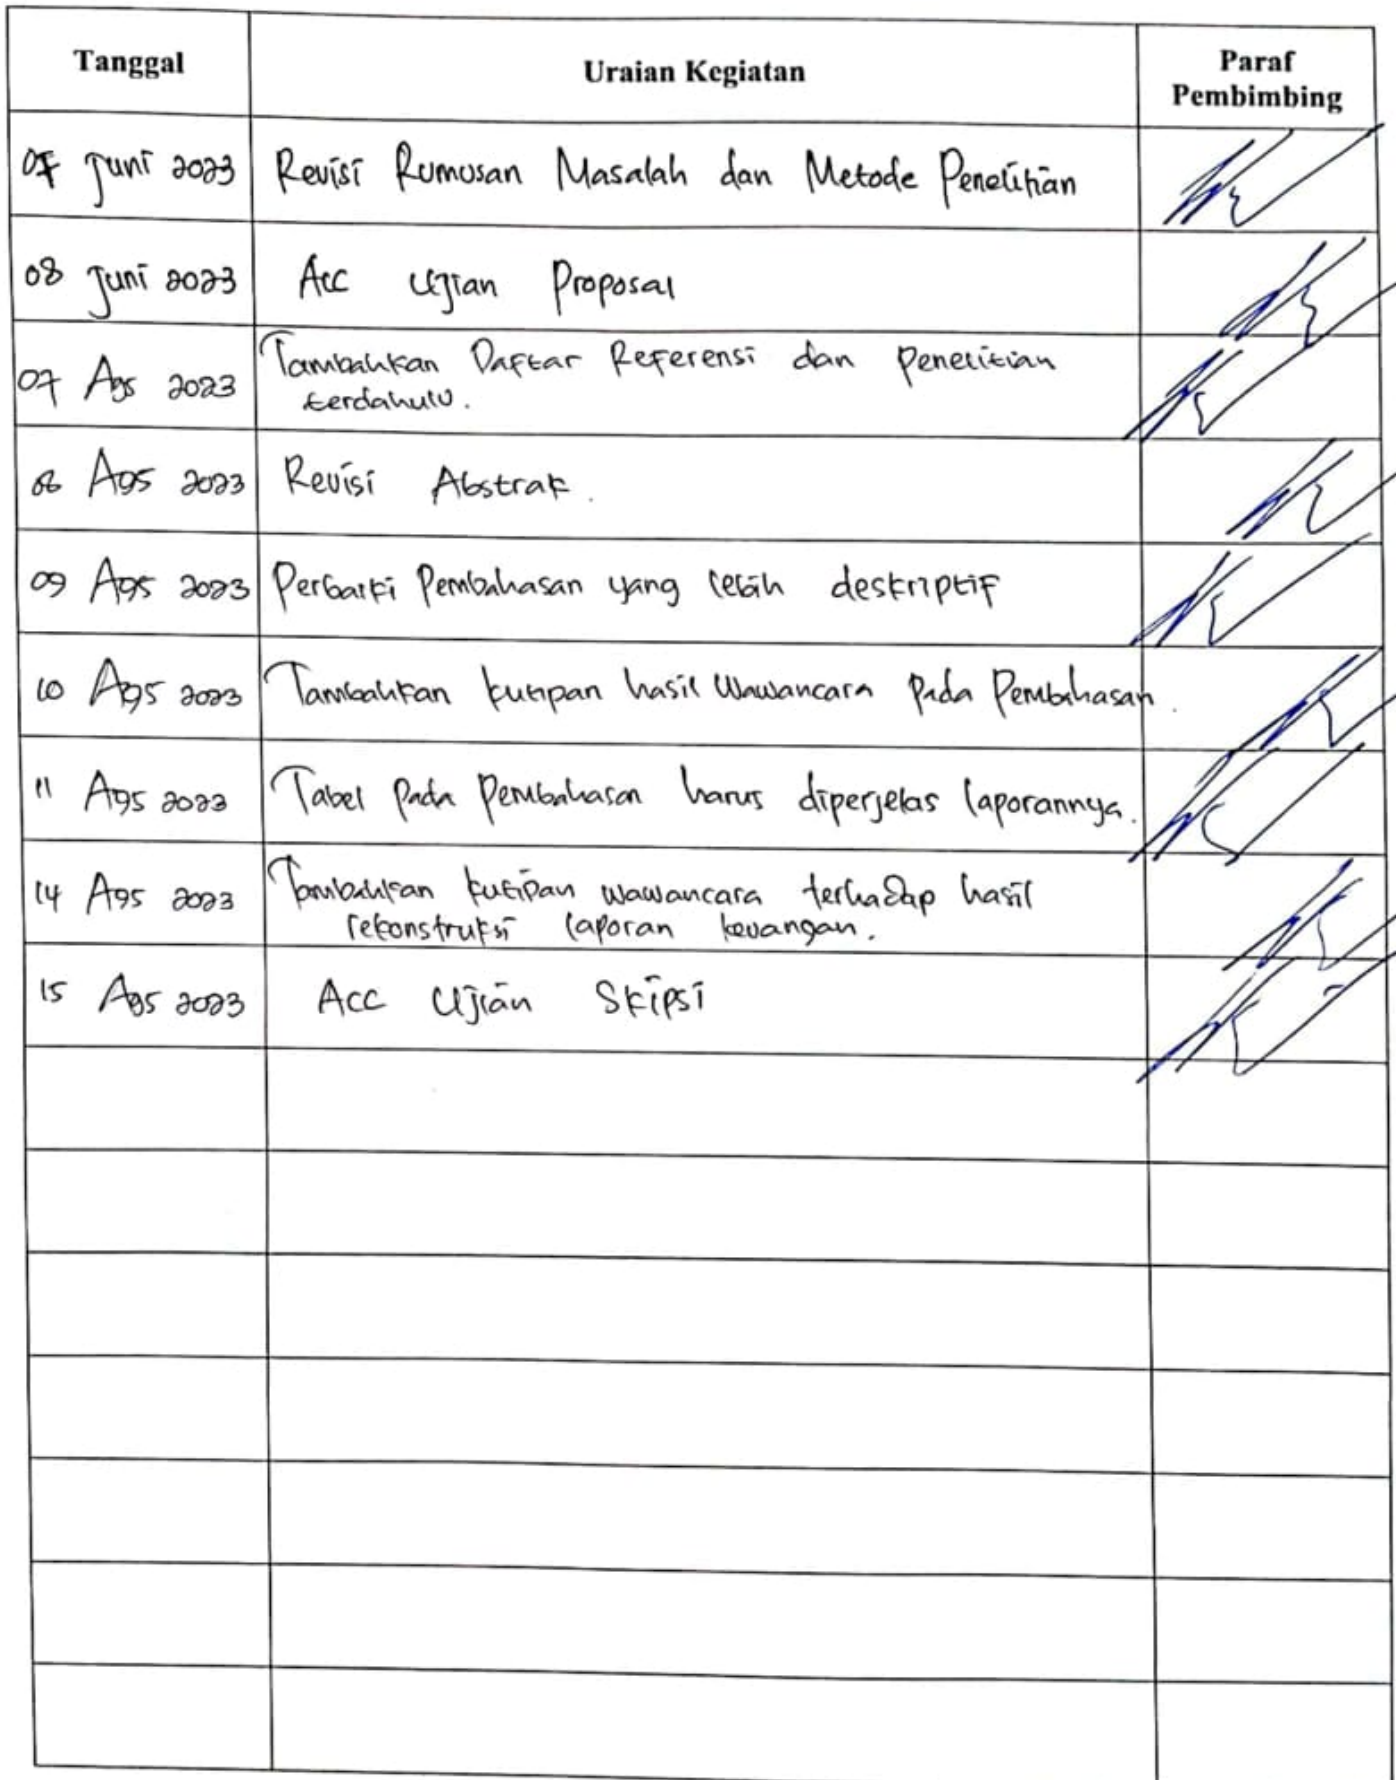 Tanggal
Uraian Kegiatan
Paraf
Pembimbing
07 Juni 2023 Revisi Rumusan Masalah dan Metode Penelitian
08 Juni 2023 Acc Ujian Proposal
07 Ags 2023 Tambahkan Daftar Referensi dan penelitian
terdahulu.
08 Ags 2023 Revisi Abstrak.
09 Ags 2023 Perbaiki Pembahasan yang lebih deskriptif
10 Ags 2023 Tambahkan kutipan hasil Wawancara pada Pembahasan.
11 Ags 2023 Tabel pada Pembahasan harus diperjelas laporannya.
14 Ags 2023 Tambahkan kutipan wawancara terhadap hasil
rekonstruksi laporan keuangan.
15 Ags 2023 Acc Ujian Skipsi